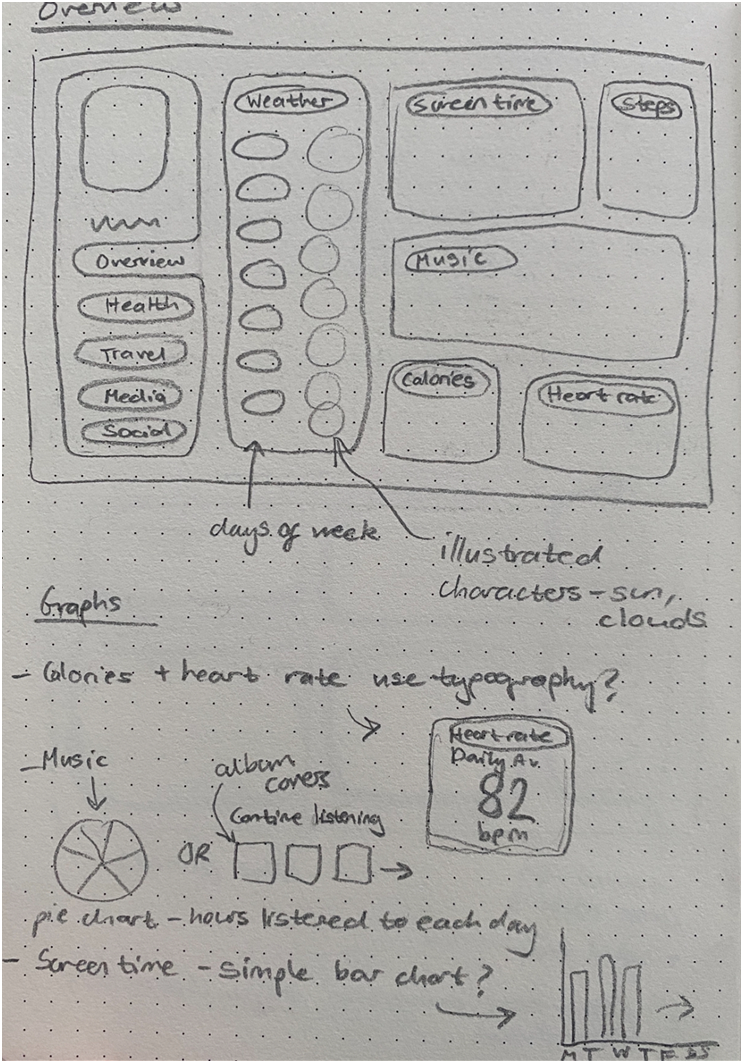 Overview
Weather
Screen time
Steps
Overview
Health
Travel
Media
Social
Music
Calories
Heart rate
days of week
illustrated
characters - sun,
clouds
Graphs
- Calories + heart rate use typography?
Heart rate
Daily Av.
82
bpm
- Music
album
covers
Contine listening
OR
pie chart - hours listened to each day
- Screen time - simple bar chart?
M T W T F S S